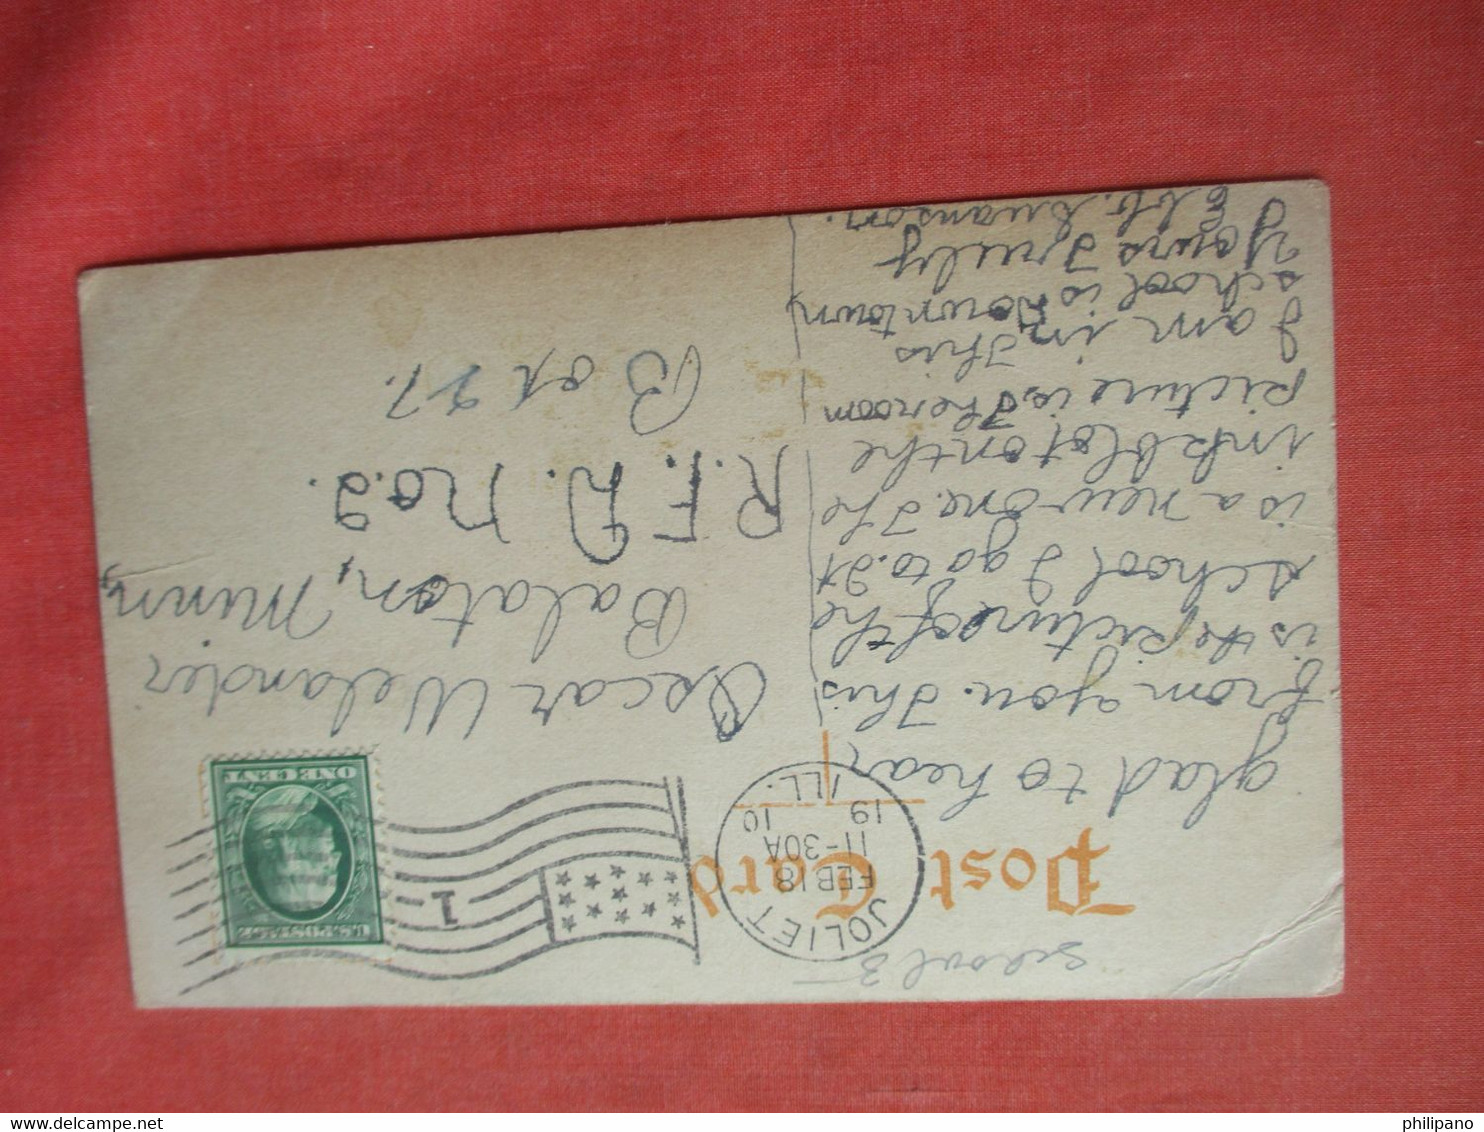 School 3
Post Card
JOLIET
FEB 18
11-30A
19 10
ILL.
1
U.S. POSTAGE
ONE CENT
glad to hear
from you. This
is the picture of the
school I go to. It
is a new one. The
ink blot on the
picture is the room
I am in. This
school is Downtown
Yours Truely
Swanson.
Oscar Welander
Balaton, Minn,
R.F.D. No. 2.
Box 27.
philipano